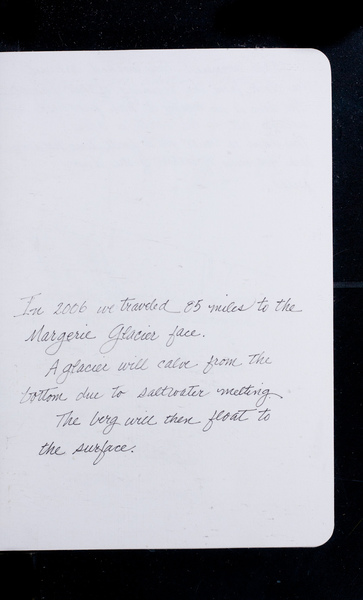 In 2006 we traveled 85 miles to the
Margerie Glacier face.
A glacier will calve from the
bottom due to saltwater melting
The berg will then float to
the surface.